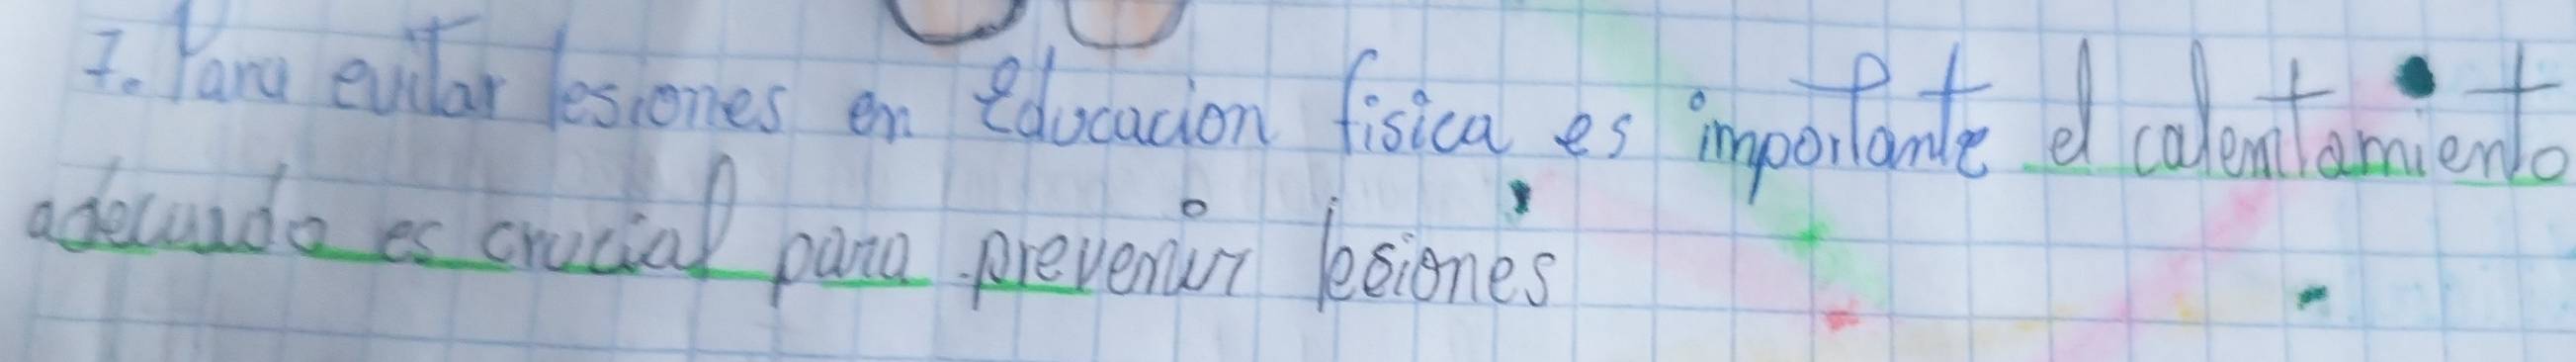 7. Para evitar lesiones en Educacion fisica es importante el calentamiento
adecuado es crucial para prevenir lesiones